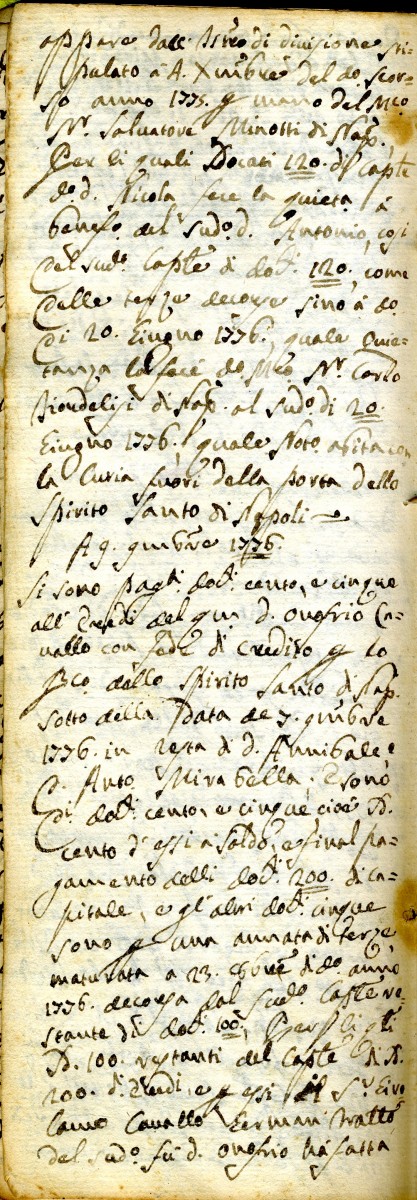 appare dall'Istro di divisione sti-
pulato à 4. Xmbre del do. scor-
so anno 1775. p mano del Mco
Nr. Salvatore Minotti di Nap.
Per li quali Docati 120. di Caple
do. d. Nicola fece la quieta à
benefo. del sudo. d. Antonio, così
del sudo. Caple di dot. 120., come
delle terze decorse sino à do.
dì 20. Giugno 1776., quale Quie-
tanza la fece do. Mco Nr. Carlo
di Nap. al sudo. dì 20.
Giugno 1776., quale Noto. abita con
la Curia fuori della porta dello
Spirito Santo di Napoli
A 9. 9mbre 1776.
Si sono pagti. doti. cento, e cinque
all'Eredi del qm d. Onofrio Ca-
vallo con fede di credito p lo
Bco. dello Spirito Santo di Nap.
sotto della data de 7. 9mbre
1776. in testa di d. Annibale, e
d. Anto. Mirabella. E sono
di. doti. cento, e cinque, cioè D.
cento d'essi à saldo, e final pa-
gamento delli doti. 200. di ca-
pitale, e gl'altri doti. cinque
sono p una annata di terze
maturata a 23. 8bre di do. anno
1776. decorsa dal sudo. Caple re-
stante di doti. 100.,
D. 100. restanti del Caple di D.
200. di. Eredi, e p essi il Sr. Giro-
lamo Cavallo German fratto
del sudo. fù d. Onofrio hà fatta